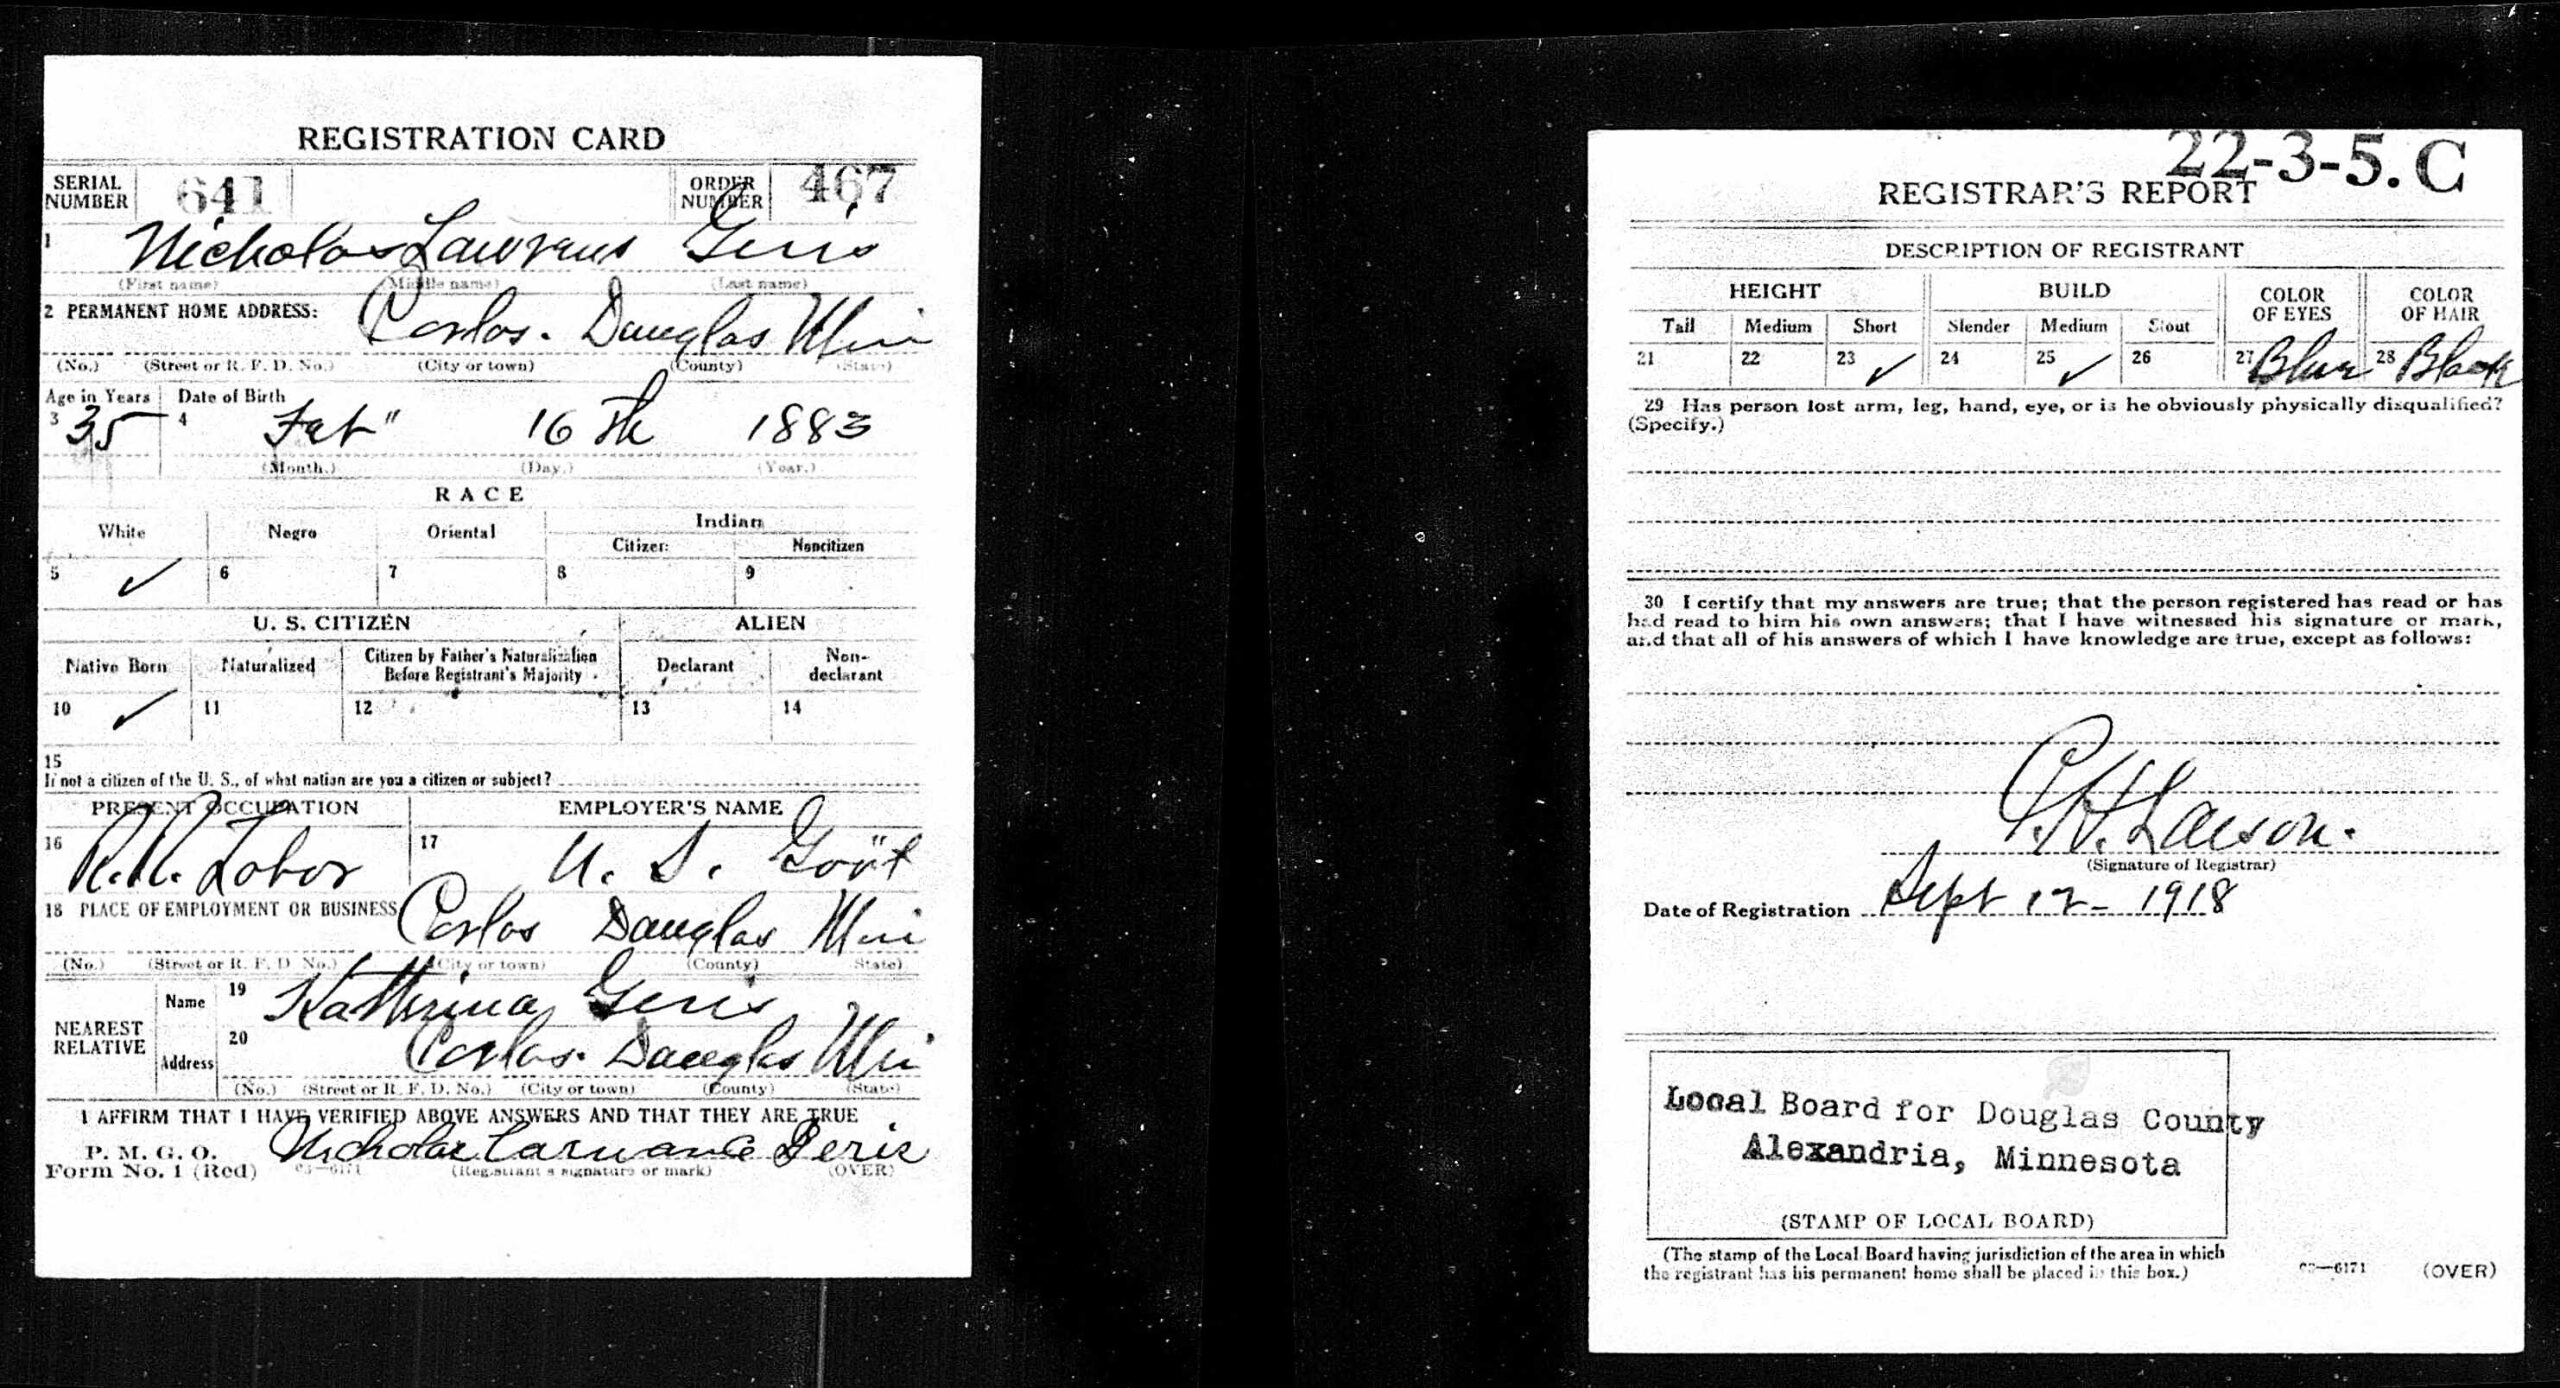 REGISTRATION CARD
SERIAL NUMBER 641 ORDER NUMBER 467
1 Nicholas Lawrens Geris
(First name) (Middle name) (Last name)
2 PERMANENT HOME ADDRESS: Carlos. Douglas Min
(No.) (Street or R. F. D. No.) (City or town) (County) (State)
Age in Years Date of Birth
3 35 4 Feb" 16 Th 1883
(Month.) (Day.) (Year.)
RACE
White Negro Oriental Indian
Citizen Noncitizen
5 ✓ 6 7 8 9
U. S. CITIZEN ALIEN
Native Born Naturalized Citizen by Father's Naturalization Before Registrant's Majority Declarant Non-declarant
10 ✓ 11 12 13 14
15
If not a citizen of the U. S., of what nation are you a citizen or subject?
PRESENT OCCUPATION EMPLOYER'S NAME
16 R.R. Labor 17 U. S. Gov"t
18 PLACE OF EMPLOYMENT OR BUSINESS Carlos Douglas Min
(No.) (Street or R. F. D. No.) (City or town) (County) (State)
NEAREST RELATIVE
Name 19 Katherina Geris
Address 20 Carlos. Douglas Min
(No.) (Street or R. F. D. No.) (City or town) (County) (State)
I AFFIRM THAT I HAVE VERIFIED ABOVE ANSWERS AND THAT THEY ARE TRUE
P. M. G. O. Nicholas Geris
Form No. 1 (Red) 03—6171 (Registrant's signature or mark) (OVER)
22-3-5. C
REGISTRAR'S REPORT
DESCRIPTION OF REGISTRANT
HEIGHT BUILD COLOR OF EYES COLOR OF HAIR
Tall Medium Short Slender Medium Stout
21 22 23 ✓ 24 25 ✓ 26 27 Blue 28 Black
29 Has person lost arm, leg, hand, eye, or is he obviously physically disqualified?
(Specify.)
30 I certify that my answers are true; that the person registered has read or has
had read to him his own answers; that I have witnessed his signature or mark,
and that all of his answers of which I have knowledge are true, except as follows:
P.H. Larson.
(Signature of Registrar)
Date of Registration Sept 12 - 1918
Local Board for Douglas County
Alexandria, Minnesota
(STAMP OF LOCAL BOARD)
(The stamp of the Local Board having jurisdiction of the area in which
the registrant has his permanent home shall be placed in this box.)
03—6171 (OVER)